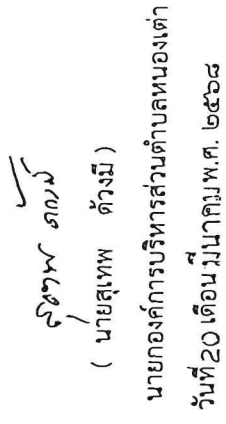 สุเทพ ด้วงมี
( นายสุเทพ ด้วงมี )
นายกองค์การบริหารส่วนตำบลหนองเต่า
วันที่ 20 เดือน มีนาคม พ.ศ. ๒๕๖๘